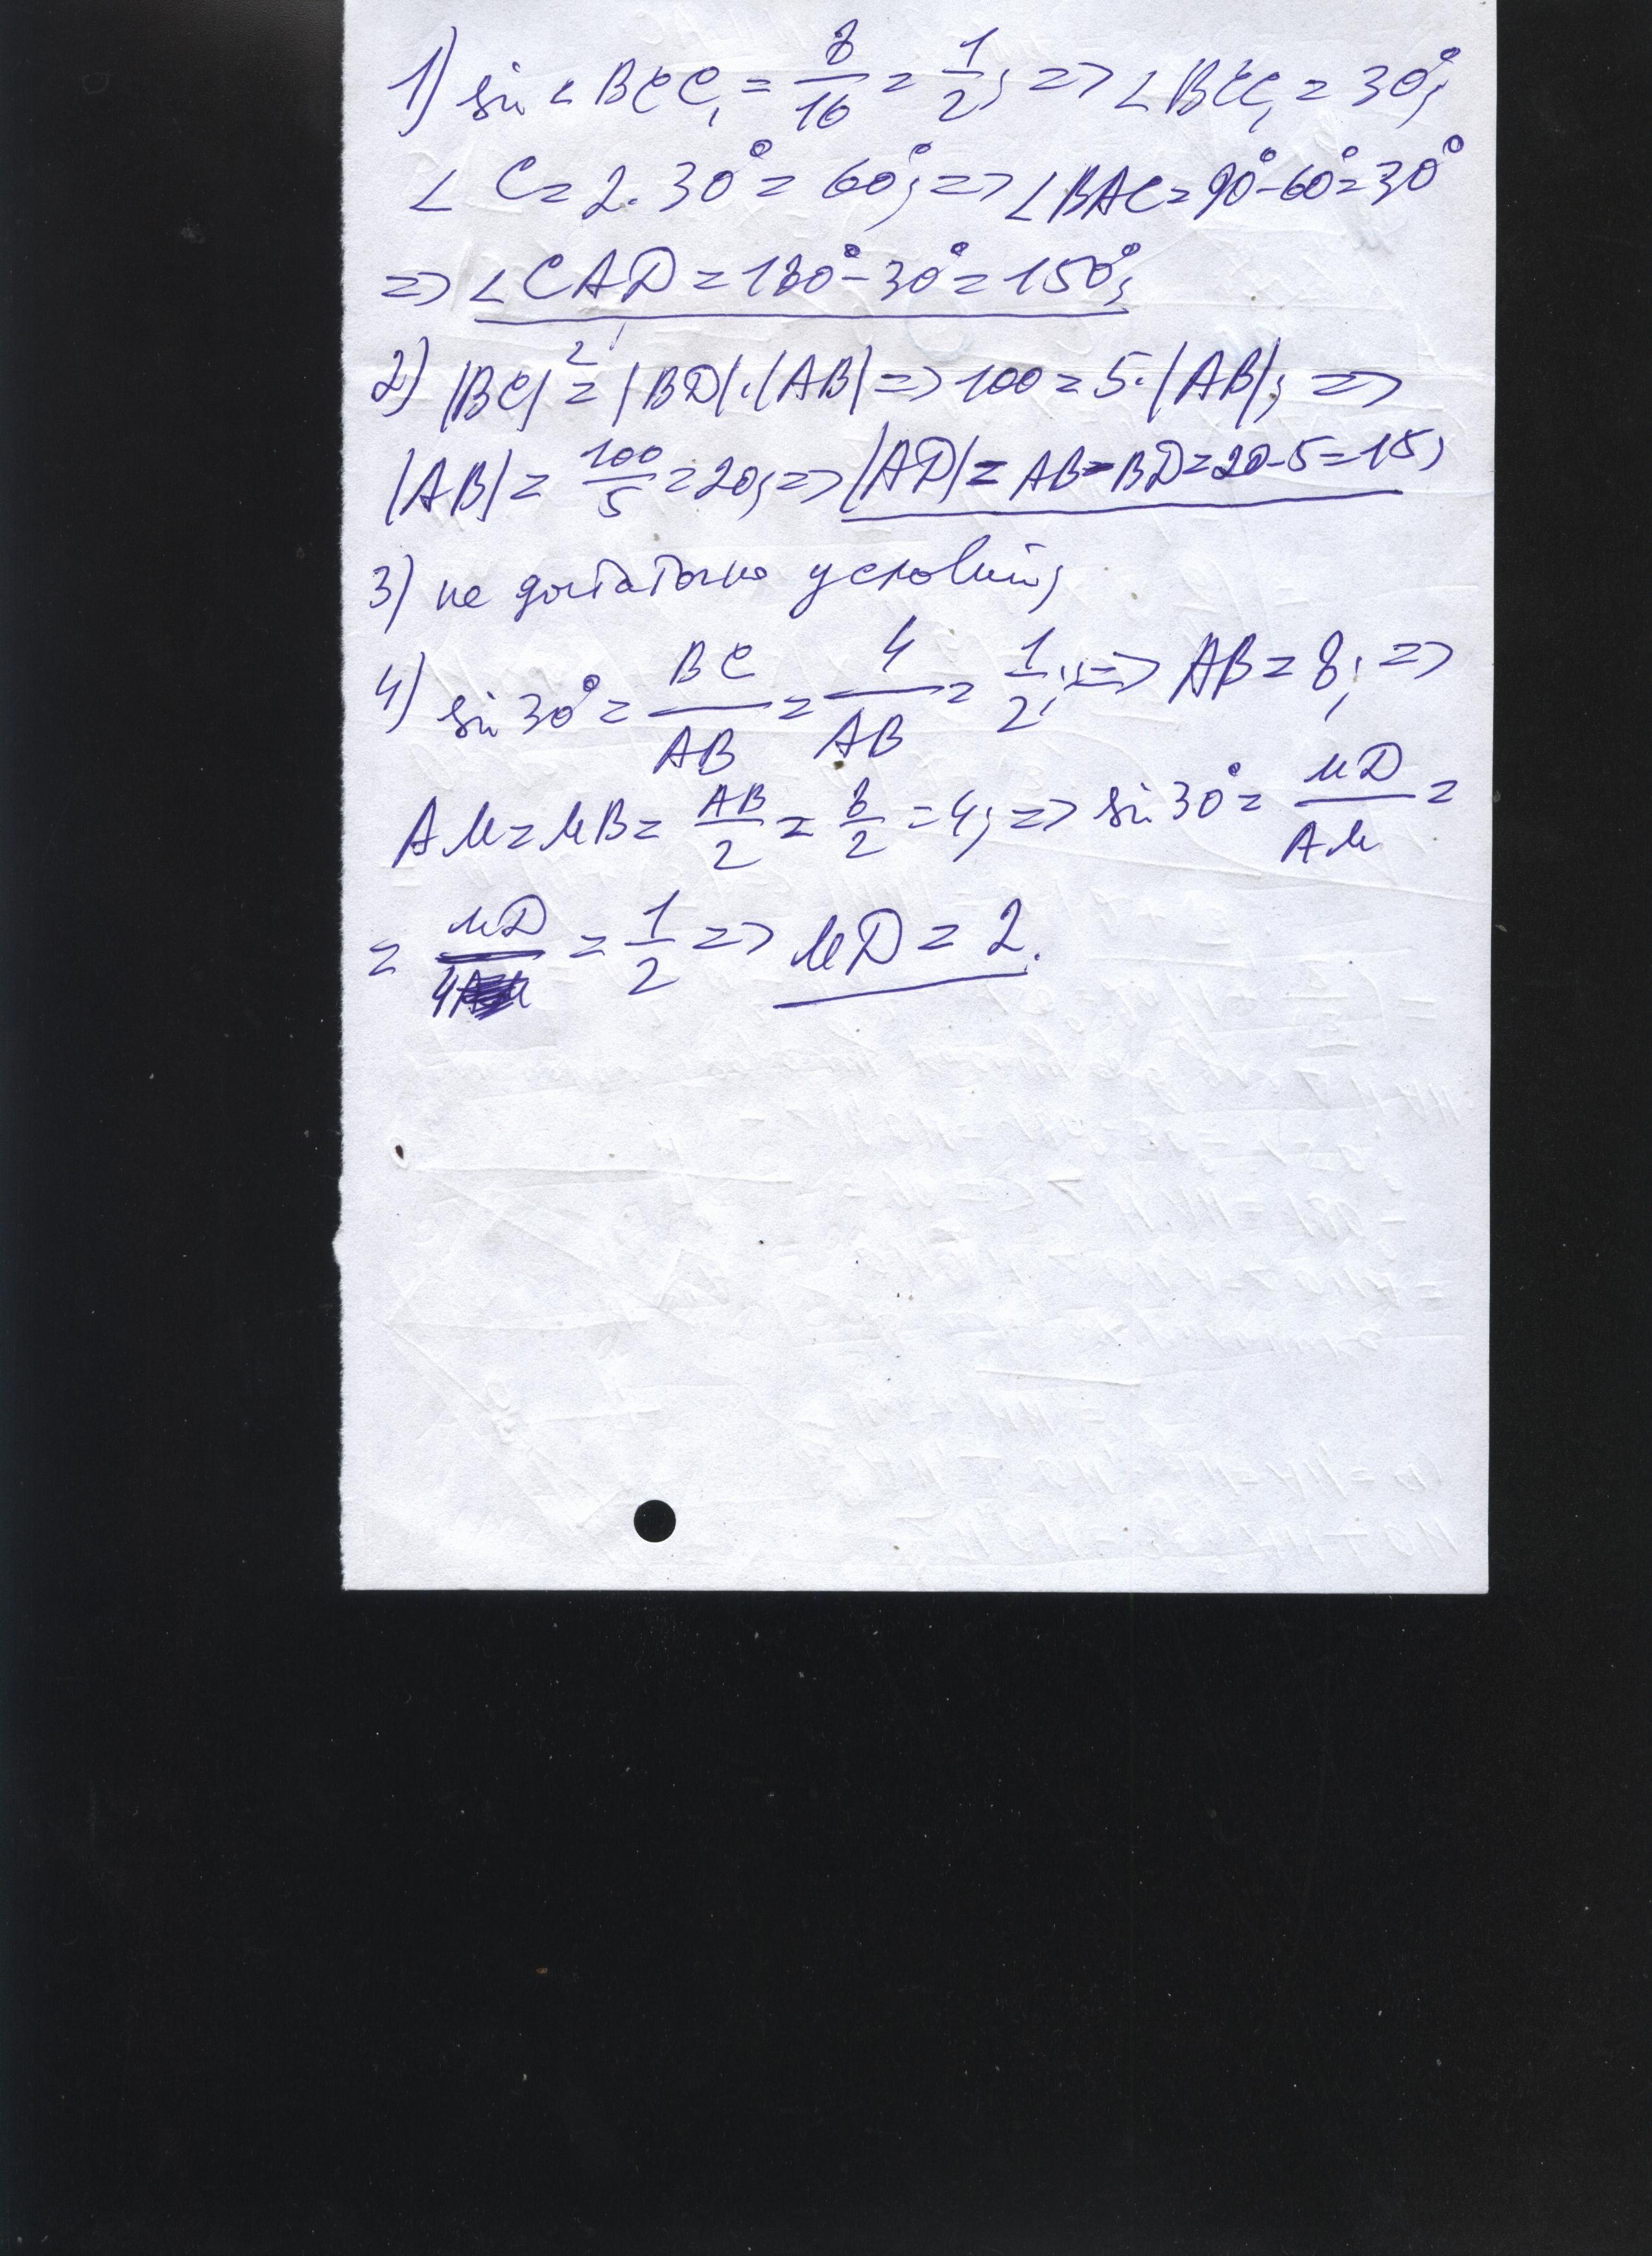 1) sin ∠BCC₁ = 8/16 = 1/2; => ∠BCC₁ = 30°;
∠C = 2·30° = 60°; => ∠BAC = 90°-60° = 30°
=> ∠CAD = 180°-30° = 150°;
2) |BC|² = |BD|·|AB| => 100 = 5·|AB|; =>
|AB| = 100/5 = 20; => |AD| = AB-BD = 20-5 = 15;
3) не достаточно условий;
4) sin 30° = BC/AB = 4/AB = 1/2; => AB = 8; =>
AM = MB = AB/2 = 8/2 = 4; => sin 30° = MD/AM =
= MD/4 = 1/2 => MD = 2.